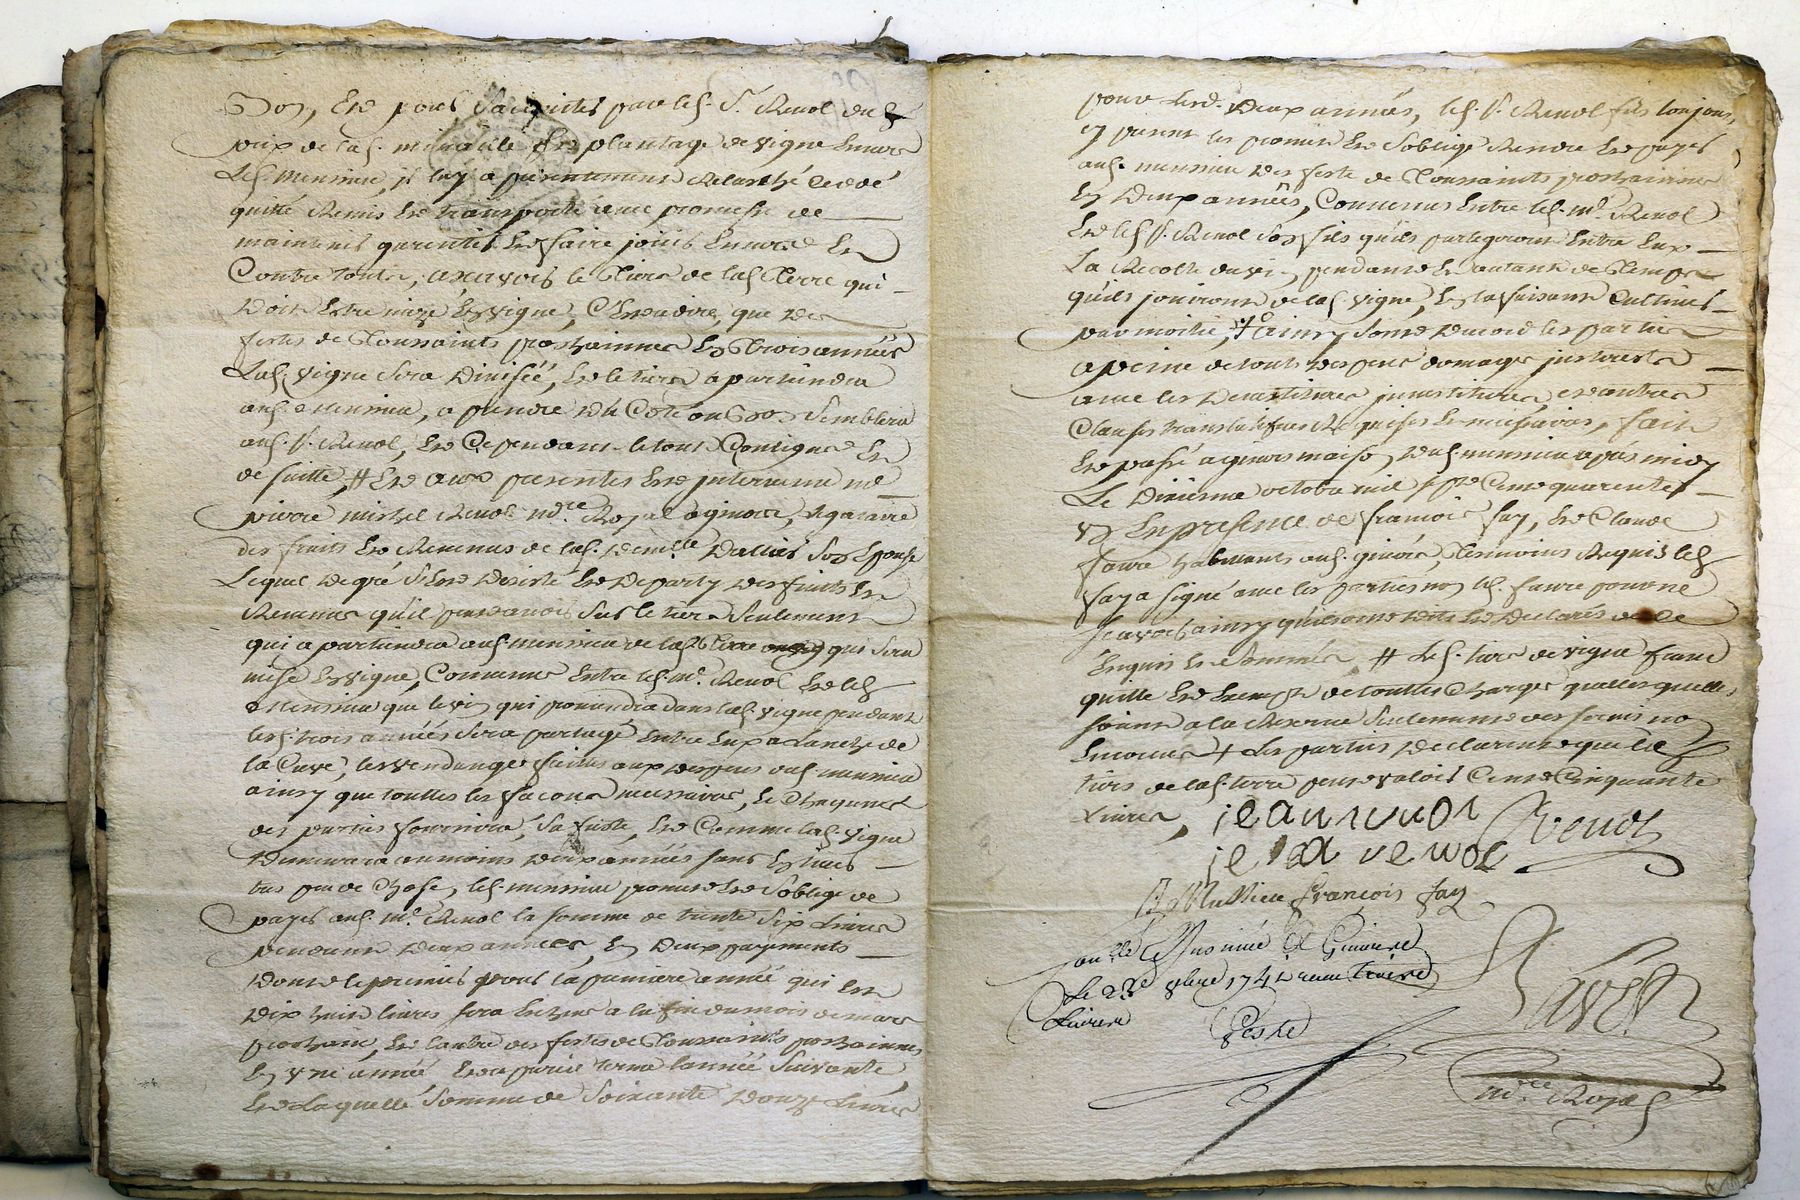 Son, Et pour Sacquiter par led. Sr. Renol du
prix de lad. minaille Et plantage de vigne Envers
Led. Mensieu, jl luy a presentement Relasché Cédé
quitté Remis Et transporté avec promesse de
maintenir garentir Et faire jouir Envers Et
Contre touts, asçavoir le Tiers de lad. Terre qui
doit Estre mize En vigne, C'Est a dire, que des
festes de Toussaints prochaines En Trois années
Lad. vigne Sera Divisée, Et le tiers apartiendra
aud. Mensieu, a prendre du Coté ou bon Semblera
aud. Sr. Renol, Et Cependant le tout Contigue Et
de suitte, # Et aux presentes Est jntervenu me
pierre michel Renol nore. Royal a ginore,
des fruits Et Revenus de lad. demlle. Son Epouse
Lequel de gré S'Est Desisté Et Departy des fruits Et
Revenus qu'il peut avoir Sur le tiers Seulement
qui apartiendra aud. mensieu de lad. Terre qui Sera
mise En vigne, Convenu Entre led. me. Renol Et led.
Mensieu que le vin qui proviendra dans lad. vigne pendant
lesd. trois années Sera partagé Entre Eux a Lanche de
la Cuve, les vendanges faites aux depens dud. mensieu
ainsy que touttes les façons necessaires, Et Chacune
des parties fournira Sa fuste, Et Comme lad. vigne
Demeurera au moins deux années sans
peu de Chose, led. mensieu promet Et S'oblige de
payer aud. me. Renol la somme de trente Six Livres
pendant deux années, En Deux payements
Dont le premier pour la premiere année qui Est
Dix huit livres sera a la fin du mois de mars
prochain, Et l'autre des festes de Toussaints prochaines
En vne année Et a pareil terme l'année Suivante
Et Laquelle Somme de Soixante Douze Livres
pour Lesd. Deux années, led. Sr. Renol fils
promet Et S'oblige Rendre Et payer
aud. mensieu des feste de Toussaints prochaines
En Deux années, Convenus Entre led. me. Renol
Et led. Sr. Renol Son fils qu'ils partageront Entre Eux
La Recolte du vin pendant Et autant de Temps
qu'ils jouiront de lad. vigne, En la faisant Cultiver
par moitié, ainsy Sont D'acord les parties
a peine de touts depens domages jnterests
avec les Devestitures jnvestitures, et autres
Clauses translatives Requises Et necessaires, fait
Et passé a ginore maison dud. mensieu apres midy
Le Dixieme octobre mil sept Cent quarente
vn En presence de françois fay, Et Claude
favre habittants aud. ginore, Temoins Requis led.
fay a signé avec les parties non led. favre pour ne
sçavoir ainsy qu'ils ont dit Et Declaré de ce
Enquis Et Sommés # Led. tiers de vigne franc
quitte Et Exempt de touttes Charges quelles quelles
soient a la Reserve Seulement des
Encourus + Les parties Declarent que le
tiers de lad. terre peut valoir Cent Cinquante
Livres,
jean renol Renol
renol
Mensieu françois fay
Le 23e 8bre 1741
nore. Royal